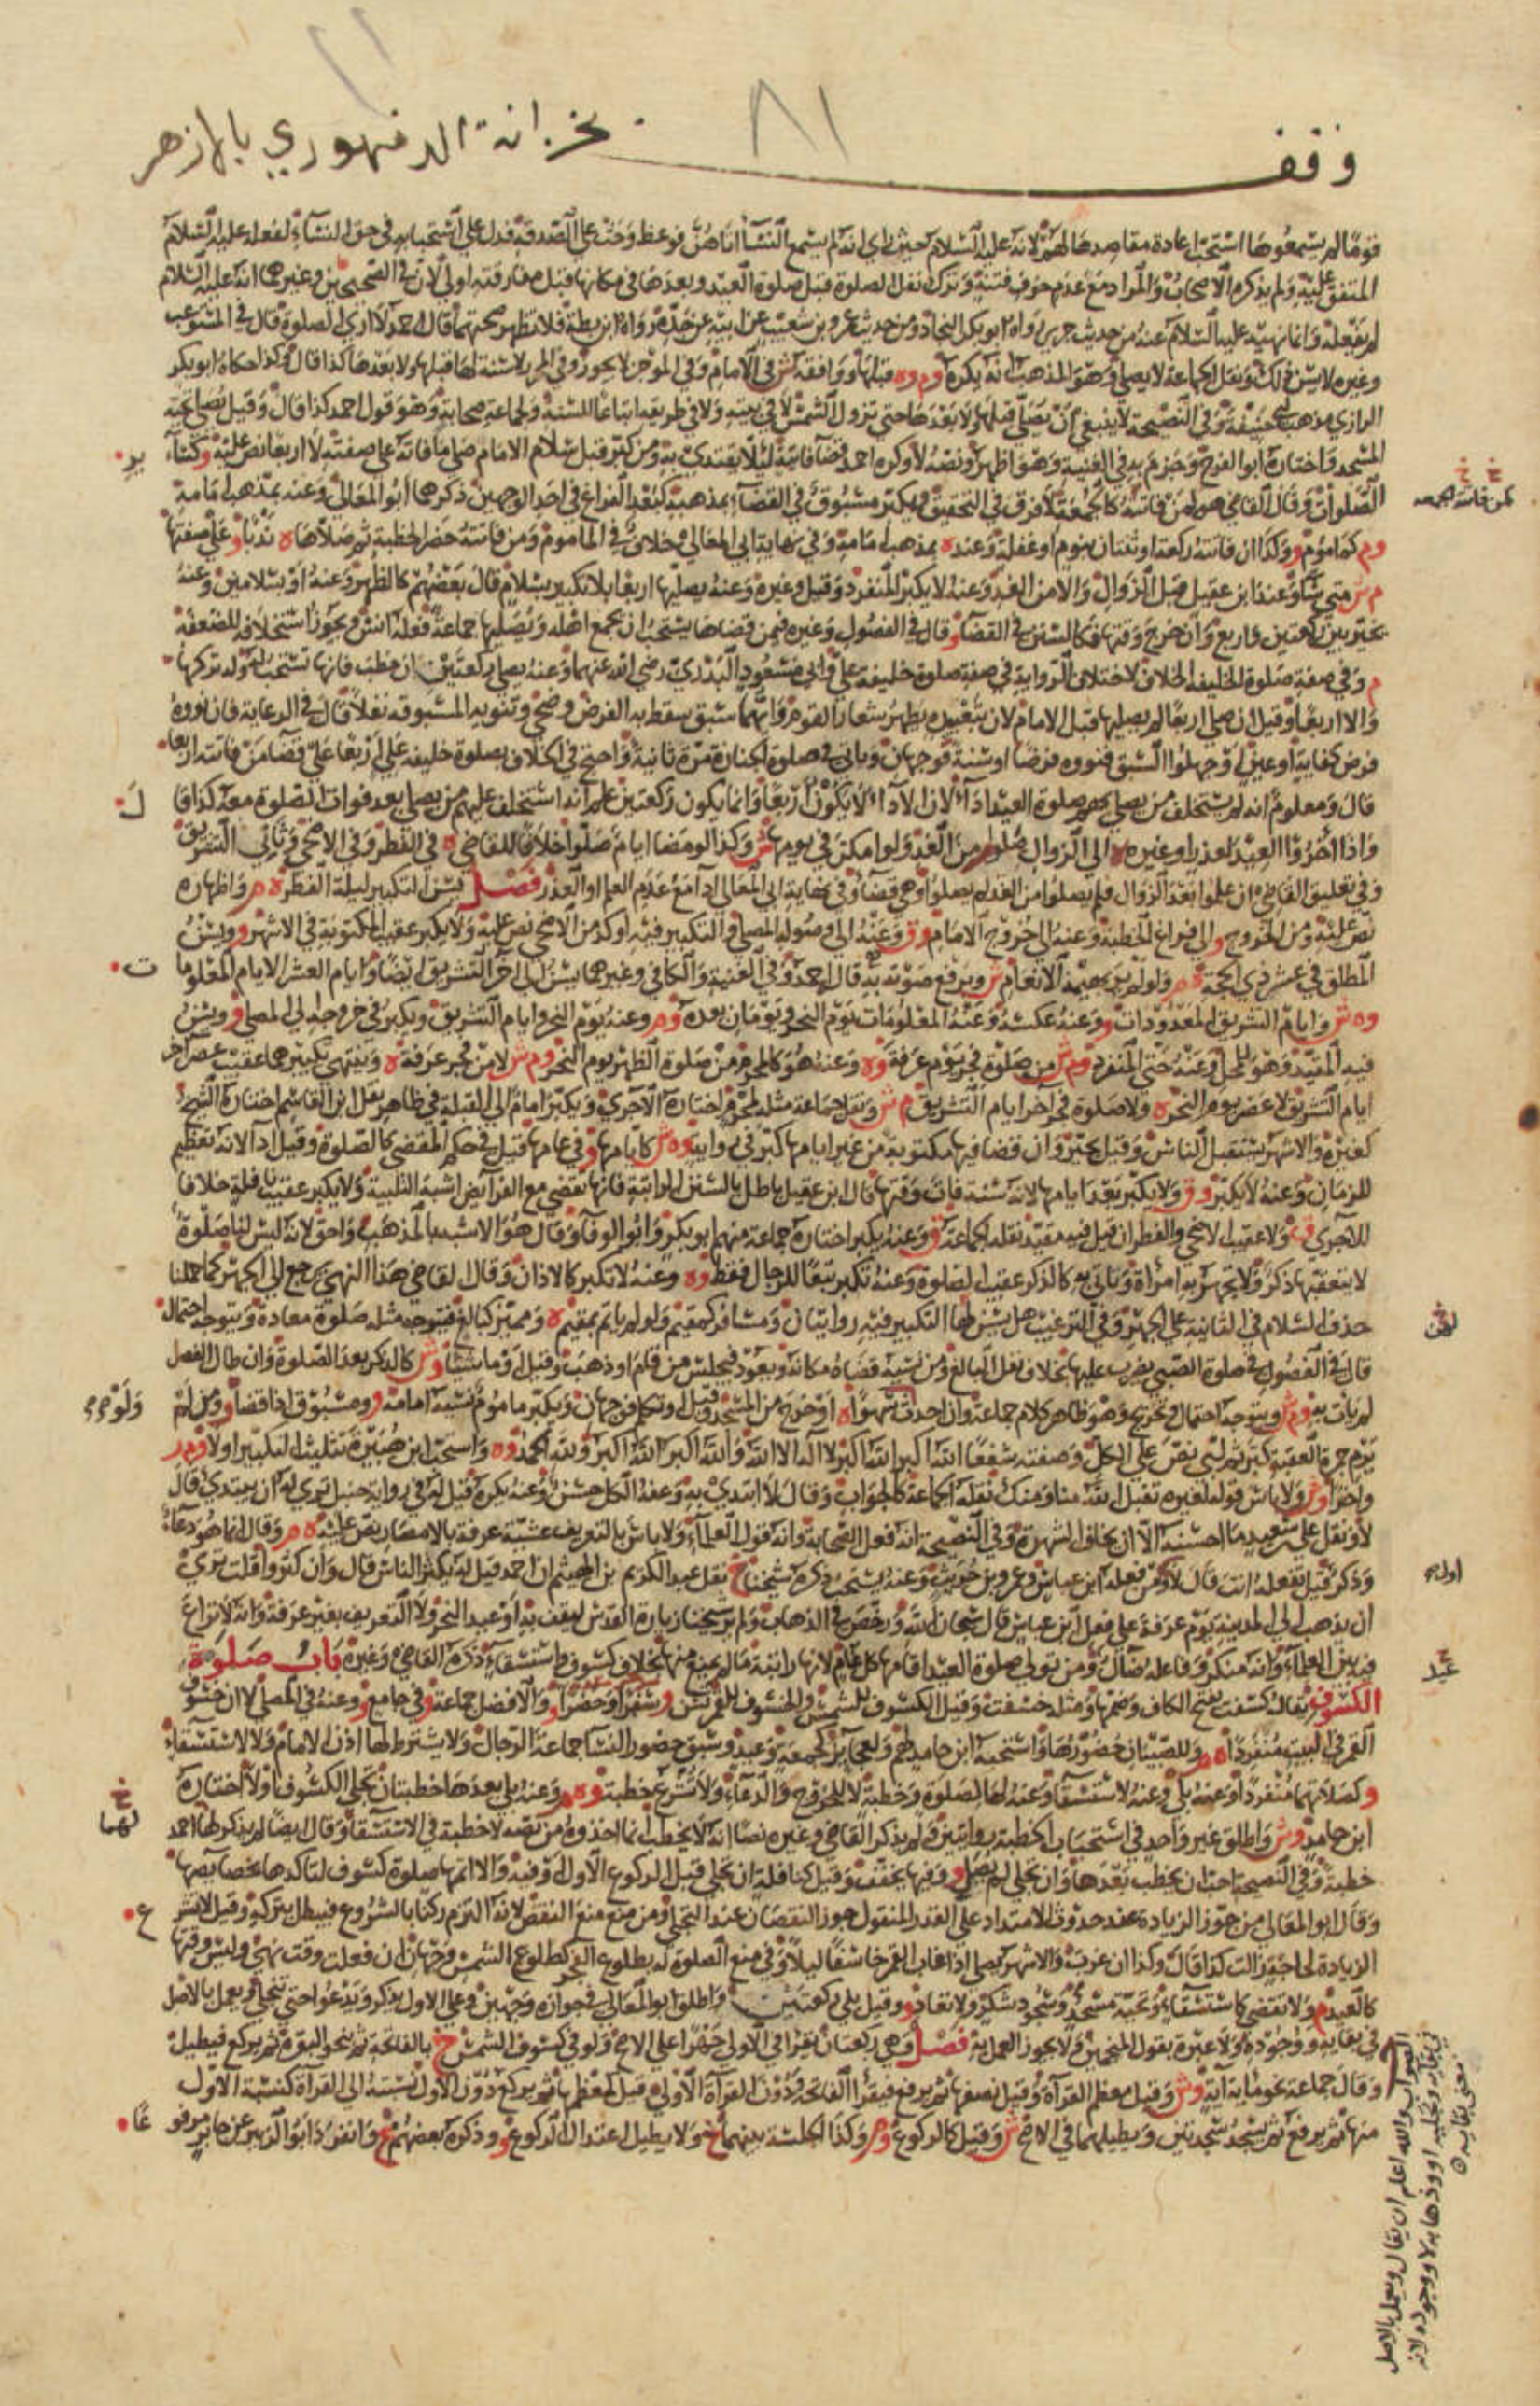 وقف بخزانة الدمنهوري بالازهر
٨١
قومًا لم يسمعوها استحب اعادة مقاصدها لهم لانه عليه السلام حيث راى انه لم يسمع النسا اتاهن فوعظ وحث على الصدقة فدل على استحبابه في حق النساء لفعله عليه السلام
المتفق عليه ولم يذكره الاصحاب والمراد مع عدم خوف فتنة وترك نفل الصلوة قبل صلوة العيد وبعدها في مكانها قبل مفارقته اولى لان في الصحيحين وغيرهما انه عليه السلام
لم يفعله وانما نهيه عليه السلام عنه من حديث جرير رواه ابو بكر النجاد ومن حديث عمرو بن شعيب عن ابيه عن جده رواه ابن بطة فلا تظهر صحتهما قال احمد لا ارى الصلوة قال في المستوعب
وغيره لا يسن ذلك ونقل الجماعة لا يصلي وهو المذهب انه يكره وم وه قبلها ووافقه ش في الامام وفي الموجز لا يجوز وفي المحرر لا سنة لها قبلها ولا بعدها كذا قال وكذا حكاه ابو بكر
الرازي مذهب ابي حنيفة وفي النصيحة لا ينبغي ان يصلى قبلها ولا بعدها حتى تزول الشمس لا في بيته ولا في طريقه اتباعا للسنة ولجماعة صحابة وهو قول احمد كذا قال وقيل يصلي تحية
المسجد واختاره ابو الفرج وجزم به في الغنية وهو اظهر ونصه لا وكره احمد قضا فائتة لئلا يقتدى به ومن كبر قبل سلام الامام صلى ما فاته على صفته لا اربعا نص عليه وكسائر
الصلوات وقال القاضي هو كمن فاتته كالجمعة لا فرق في التحقيق ويكبر مسبوق في القضاء بمذهبه كبعد الفراغ في احد الوجهين ذكرهما ابو المعالي وعنه بمذهب امامه
وم كماموم وكذا ان فاتته ركعة او ثنتان بنوم او غفلة وعنده بمذهب امامه وفي نهاية ابي المعالي وخلاف في الماموم ومن فاتته حضر الخطبة ثم صلاها ه ندبا على صفتها
م ش متى شا وعند ابن عقيل قبل الزوال والا من الغد وعنه لا يكبر المنفرد وقيل وغيره وعنه يصليها اربعا بلا تكبير بسلام قال بعضهم كالظهر وعنه او بسلامين وعنه
يخير بين ركعتين واربع وان خرج وقتها فكالسنن في القضا وقال في الفصول وغيره فيمن قضاها يستحب ان يجمع اهله ويصليها جماعة فعله انس ويجوز استخلافه للضعفة
م وفي صفة صلوة الخليفة الخلاف لاختلاف الرواية في صفة صلوة خليفة علي وابي مسعود البدري رضي الله عنهما وعنه يصلي ركعتين ان خطب فانها تستحب لهم وله تركها
والا اربعا وقيل ان صلى اربعا لم يصلها قبل الامام لان بتغييره يظهر شعار القوم وايهما سبق سقط به الفرض وضحى وتنويه المسبوقة نفلا قال في الرعاية فان نووه
فرض كفاية او عين او جهلوا السبق فنووه فرضا او سنة فوجهان وياتي في صلوة الجنازة مرة ثانية واحتج في الخلاف بصلوة خليفة علي اربعا على قضا من فاتته اربعا
قال ومعلوم انه لم يستخلف من يصلي بهم صلوة العيد اداء لان الاداء لا يكون اربعا وانما يكون ركعتين علم انه استخلف عليهم من يصلي بعد فوات الصلوة معه كذا قا ل
واذا اخروا العيد لعذر او غيره ه الى الزوال صلوا م من الغد ولو امكن في يومها ش وكذا لو مضا ايام صلوا خلافا للقاضي ه في الفطر وفي الاضحى وثاني التشريق
وفي تعليق القاضي ان علموا بعد الزوال فلم يصلوا من الغد لم يصلوا وهي قضا وفي نهاية ابي المعالي ادا مع عدم العلم او العذر فصل يسن التكبير ليلة الفطر ه م واظهاره
نص عليه ومن الخروج و الى فراغ الخطبة وعنه الى خروج الامام و ق وعنه الى وصوله المصلى والتكبير فيه اوكد من الاضحى نص عليه ولا يكبر عقب المكتوبة في الاشهر و ويسن
المطلق في عشر ذي الحجة ه م ولو لم ير بهيمة الانعام ش ويرفع صوته به قال احمد وفي الغنية والكافي وغيرهما يسن الى اخر التشريق ايضا وايام العشر الايام المعلوما ت
وه ش وايام التشريق المعدودات و وعنه عكسه وعنه المعلومات يوم النحر ويومان بعده وم وعنه يوم النحر وايام التشريق ويكبر في خروجه الى المصلى و ويسن
فيه المقيد وهو للمحل وعنه حتى المنفرد وم ش من صلوة فجر يوم عرفة وه وعنه هو كالمحرم من صلوة الظهر يوم النحر وم ش لا من فجر عرفة ه وينتهي تكبيرهما عقيب عصر اخر
ايام التشريق لا عصر يوم النحر ه ولا صلوة فجر اخر ايام التشريق م ش ونقل جماعة مثله لمحرم اختاره الآجري ويكبر امام الى القبلة في ظاهر نقل ابن القاسم اختاره الشيخ
كغيره والاشهر يستقبل الناس وقيل يخير وان قضا فيها مكتوبة من غير ايامها كبر في رواية وه ش كايامها وفي عامها قيل في حكم المقضي كالصلوة وقيل ادا لانه تعظيم
للزمان وعنه لا يكبر و ق ولا يكبر بعد ايامها لانه سنة فات وقتها قال ابن عقيل باطل بالسنن الراتبة فانها تقضى مع الفرايض اشبه التلبية ولا يكبر عقيب نافلة خلافا
للآجري ق ولا عقيب الاضحى والفطر ان قيل فيه مقيد نقله الجماعة ق وعنه يكبر اختاره جماعة منهم ابو بكر وابو الوفا وقال هو الاشبه بالمذهب واحق لانه ليس لنا صلوة
لا يتعقبها ذكر ولا تجهر به امراة وتاتي به كالذكر عقيب الصلوة وعنه تكبر تبعا للرجال فقط وه وعنه لا تكبر كالاذان وقال القاضي هذا النهي رجع الى الجهر كما حملنا
حذف السلام في الثانية على الجهر وفي الترغيب هل يسن لها التكبير فيه روايتان ومسافر كمقيم ولو لم ياتم بمقيم ه ومميز كبالغ فيتوجه مثله صلوة معادة ويتوجه احتمال
قال في الفصول في صلوة الصبي يضرب عليها بخلاف نفل البالغ ومن نسيه قضاه مكانه ويعود فيجلس من قام او ذهب وقيل او ماشيا وش كالذكر بعد الصلوة وان طال الفصل
لم يات به وم ش ويتوجه احتمال وتخريج وهو ظاهر كلام جماعة وان احدث سهوا ه او خرج من المسجد وقيل او تكلم فوجهان ويكبر ماموم نسيه امامه و ومسبوق اذا قضا و ومن لم
يرم جمرة العقبة كبر ثم لبى نص على الكل وصفته شفعا الله اكبر الله اكبر لا اله الا الله والله اكبر الله اكبر ولله الحمد وه واستحب ابن هبيرة تثليث التكبير اولا وم ر
واخرا وش ولا باس قوله لغيره تقبل الله منا ومنك نقله الجماعة كالجواب وقال لا ابتدي به وعنه الكل حسن وعنه يكره قيل له في رواية حنبل ترى له ان يبتدي قال
لا ونقل علي بن سعيد ما احسنه الا ان يخاف الشهرة وفي النصيحة انه فعل الصحابة وانه قول العلماء ولا باس بالتعريف عشية عرفة بالامصار نص عليه ه م وقال انما هو دعاء
وذكر قيل تفعله انت قال لا وممن فعله ابن عباس وعمرو بن حريث وعنه يستحب ذكره شيخنا خ نقل عبد الكريم بن الهيثم ان احمد قيل له يكثر الناس قال وان كثروا قلت ترى
ان يذهب الى المدينة يوم عرفة على فعل ابن عباس قال سبحان الله ورخص في الذهاب ولم ير شيخنا زيارة القدس ليقف به او عيد النحر ولا التعريف بغير عرفة وانه لا نزاع
فيه بين العلماء وانه منكر وفاعله ضال ومن تولى صلوة العيد اقامها كل عام لانها راتبة ما لم يمنع منها بخلاف كسوف واستسقاء ذكره القاضي وغيره باب صلوة
الكسوف يقال كسفت بفتح الكاف وضمها ومثله خسفت وقيل الكسوف للشمس والخسوف للقمر تسن و سفرا وحضرا و والافضل جماعة و في جامع و وعنه في المصلى لا ان خسوف
القمر في البيت منفردا ه م وللصبيان حضورها واستحبه ابن حامد لهم ولعجايز كجمعة وعيد وسبق حضور النسا جماعة الرجال ولا يشترط لها اذن الامام ولا الاستسقاء
و كصلاتهما منفردا وعنه بلى وعنه لاستسقا وعنه لها لصلوة وخطبة لا للخروج والدعاء ولا تشرع خطبة وه م وعنه بلى بعدها خطبتان تجلى الكسوف اولا اختاره
ابن حامد وش واطلق غير واحد في استحباب الخطبة روايتين ولم يذكر القاضي وغيره نصا انه لا يخطب انما اخذوه من نصه لا خطبة في الاستسقا وقال ايضا لم يذكر لها احمد
خطبة وفي النصيحة احب ان يخطب بعدها وان تجلى لم يصل و وفيها يخفف وقيل كنافلة ان تجلى قبل الركوع الاول او فيه والا اتمها صلوة كسوف لتاكدها بخصايصها
وقال ابو المعالي من جوز الزيادة عند حدوث الامتداد على القدر المنقول جوز النقصان عند التجلي ومن منع منع النقص لانه التزم ركنا بالشروع فيبطل بتركه وقيل لا تشر ع
الزيادة لحاجة زالت كذا قال وكذا ان غربت والاشهر يصلي اذا غاب القمر خاسفا ليلا وفي منع الصلوة له بطلوع الفجر كطلوع الشمس وجهان ان فعلت وقت نهي وليس وقتها
كالعيد م ولا تقضى كاستسقاء وتحية مسجد وسجود شكر ولا تعاد و وقيل بلى ركعتين واطلق ابو المعالي في جوازه وجهين وعلى الاول يذكر ويدعو حتى تنجلي ويعمل بالاصل
في بقايه ووجوده ولا عبرة بقول المنجمين ولا يجوز العمل به فصل وهي ركعتان يقرا في الاولى جهرا على الاصح ولو في كسوف الشمس خ بالفاتحة ثم نحو البقرة ثم يركع فيطيل
وقال جماعة نحو ماية اية وش وقيل معظم القراة وقيل نصفها ثم يرفع فيقرأ الفاتحة ودون القراة الاولى قيل كمعظمها ثم يركع دون الاول نسبته الى القراة كنسبة الاول
منها ثم يرفع ثم يسجد سجدتين ويطيلهما في الاصح ش وقيل كالركوع وم وكذا الجلسة بينهما خ ولا يطيل اعتدال الركوع و وذكره بعضهم ع وانفرد ابو الزبير عن جابر مرفو عًا
كمن فاتته الجمعة
لهن
ولو حرم
عيد
لهما
الصواب والله اعلم ان يقال ويعمل بالاصل
في بقايه وتجليه او وذهابه لا ووجوده لانه
معنى بقايه